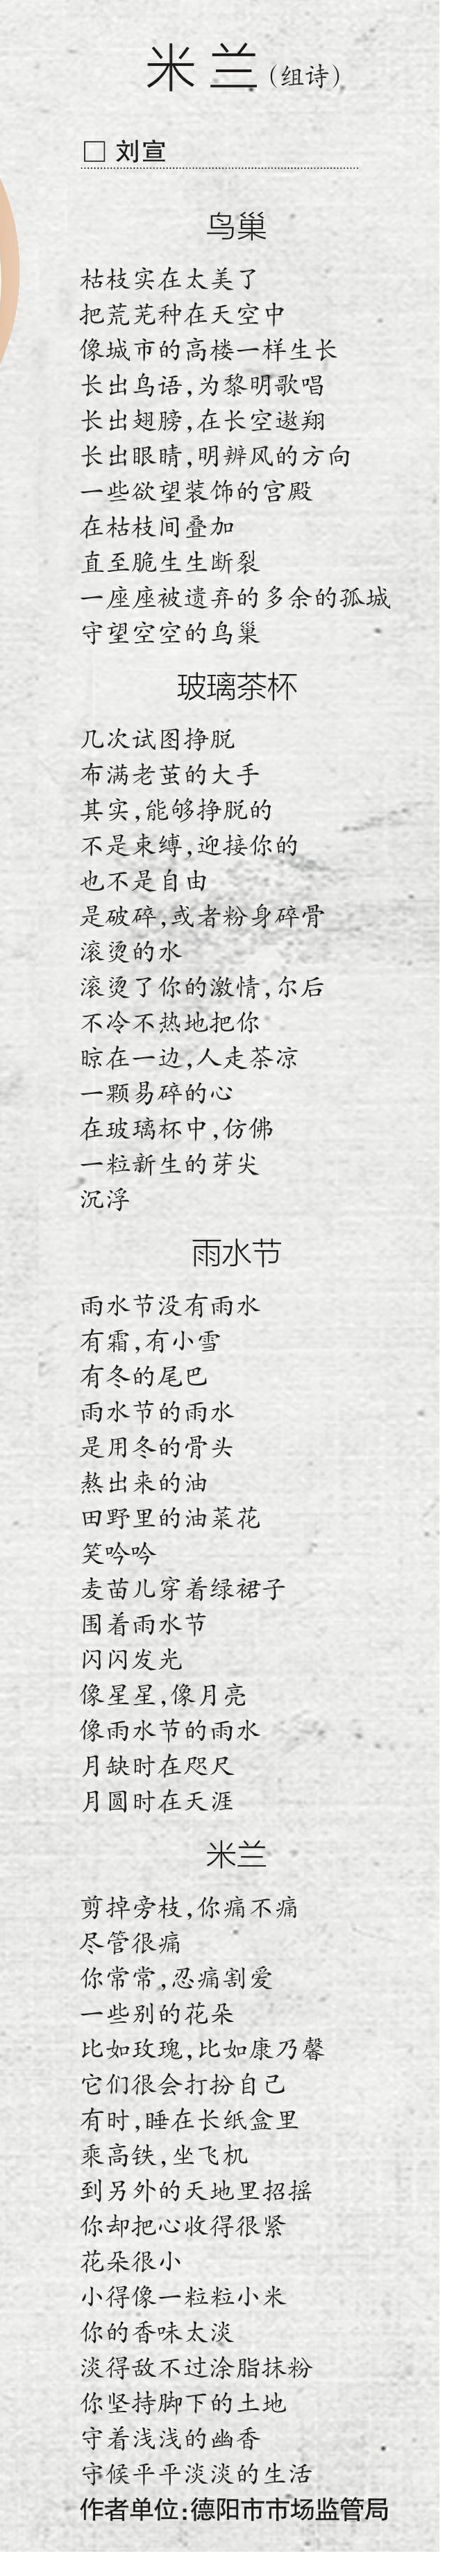 米兰(组诗)
□ 刘宣
鸟巢
枯枝实在太美了
把荒芜种在天空中
像城市的高楼一样生长
长出鸟语,为黎明歌唱
长出翅膀,在长空遨翔
长出眼睛,明辨风的方向
一些欲望装饰的宫殿
在枯枝间叠加
直至脆生生断裂
一座座被遗弃的多余的孤城
守望空空的鸟巢
玻璃茶杯
几次试图挣脱
布满老茧的大手
其实,能够挣脱的
不是束缚,迎接你的
也不是自由
是破碎,或者粉身碎骨
滚烫的水
滚烫了你的激情,尔后
不冷不热地把你
晾在一边,人走茶凉
一颗易碎的心
在玻璃杯中,仿佛
一粒新生的芽尖
沉浮
雨水节
雨水节没有雨水
有霜,有小雪
有冬的尾巴
雨水节的雨水
是用冬的骨头
熬出来的油
田野里的油菜花
笑吟吟
麦苗儿穿着绿裙子
围着雨水节
闪闪发光
像星星,像月亮
像雨水节的雨水
月缺时在咫尺
月圆时在天涯
米兰
剪掉旁枝,你痛不痛
尽管很痛
你常常,忍痛割爱
一些别的花朵
比如玫瑰,比如康乃馨
它们很会打扮自己
有时,睡在长纸盒里
乘高铁,坐飞机
到另外的天地里招摇
你却把心收得很紧
花朵很小
小得像一粒粒小米
你的香味太淡
淡得敌不过涂脂抹粉
你坚持脚下的土地
守着浅浅的幽香
守候平平淡淡的生活
作者单位:德阳市市场监管局